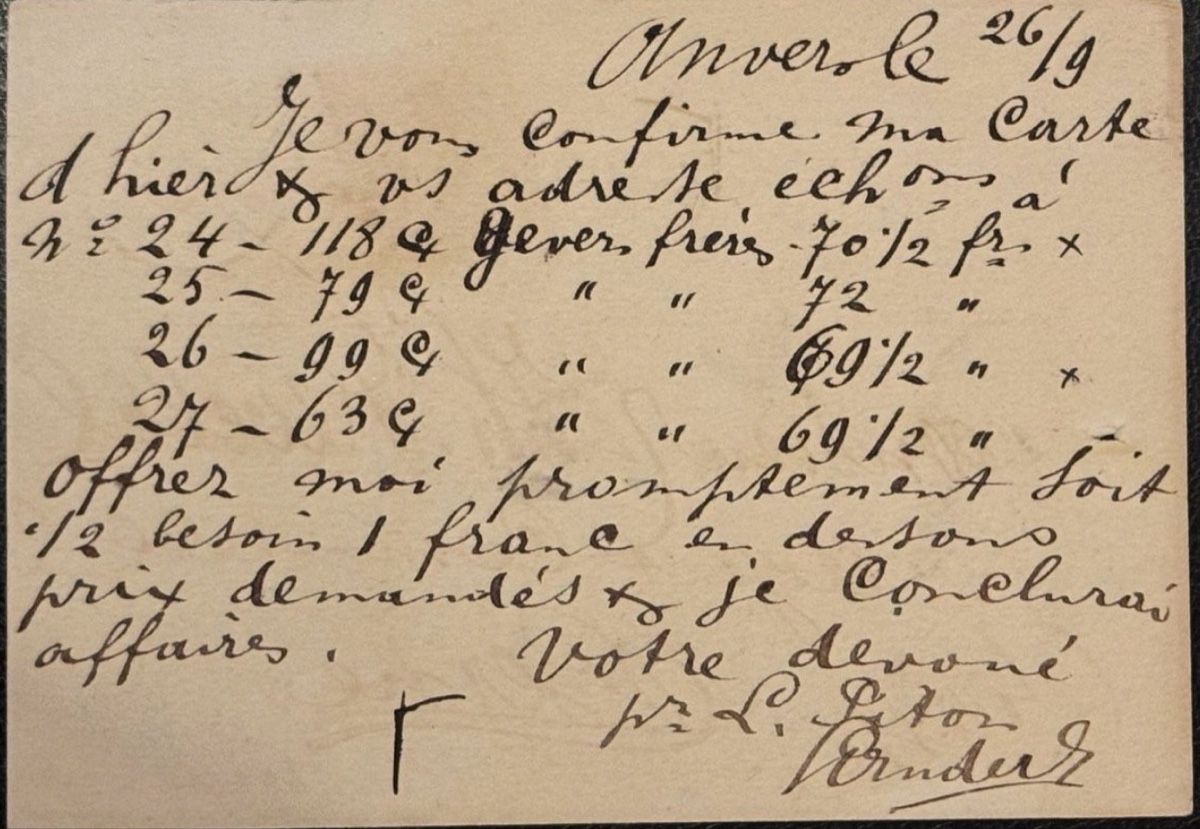 Anvers le 26/9
Je vous confirme ma Carte
d hier & vs adresse échons à
No 24 - 118 C Gevers frères 70 1/2 frs x
25 - 79 C " " 72 "
26 - 99 C " " 69 1/2 " x
27 - 63 C " " 69 1/2 "
offrez moi promptement soit
1/2 besoin 1 franc en dessous
prix demandés & je Conclurai
affaires. Votre dévoué
pr L.